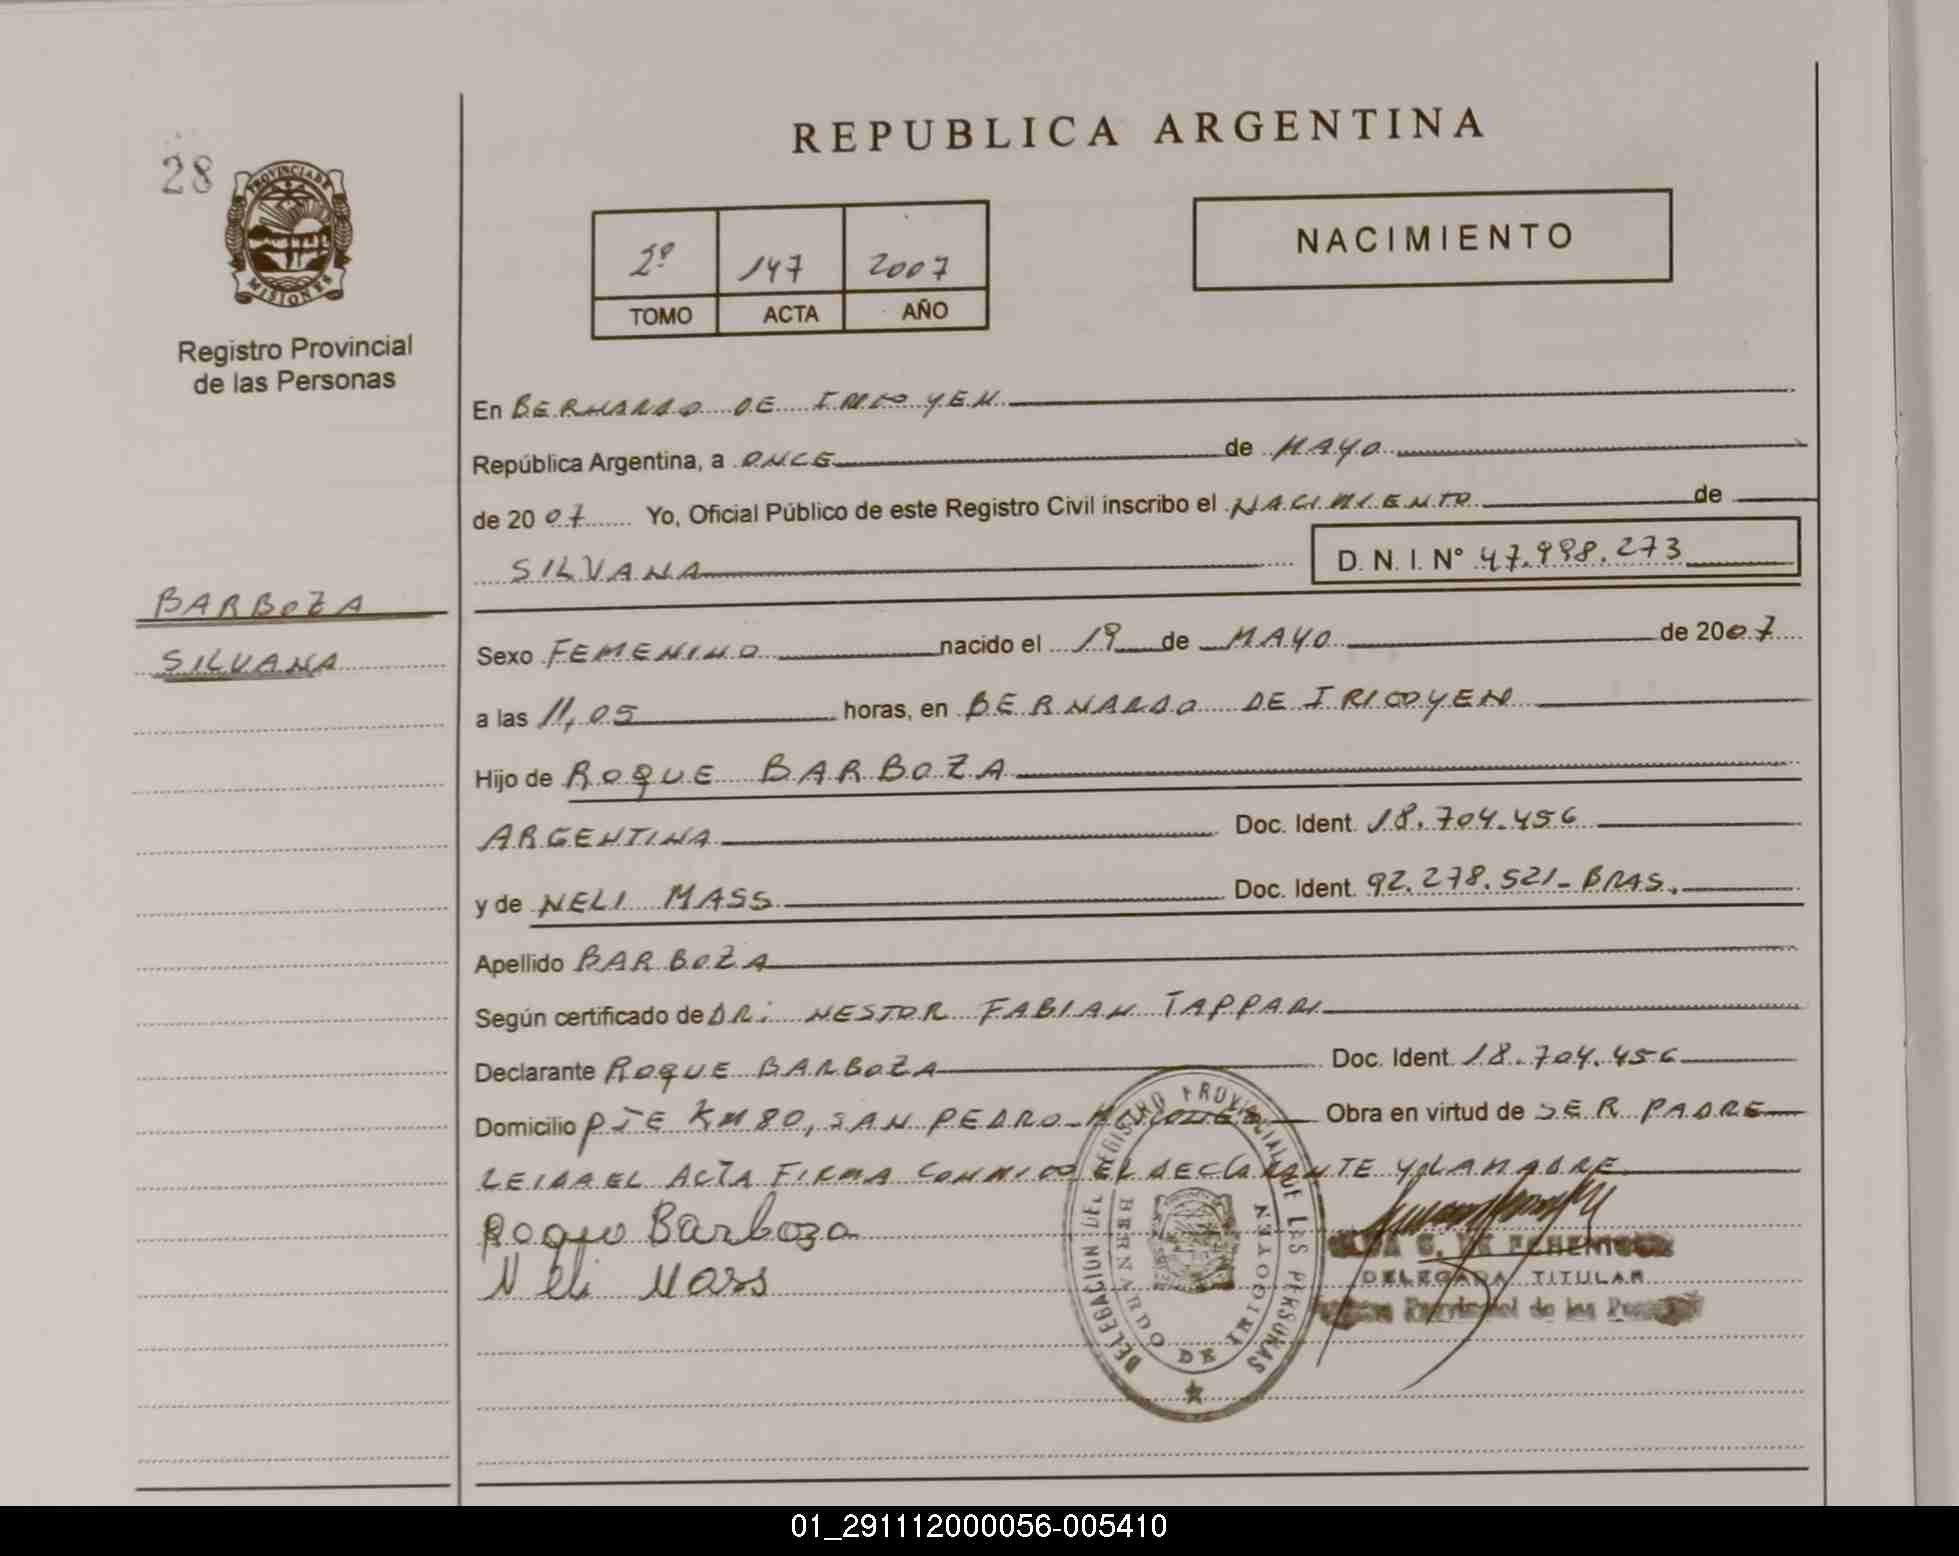 REPUBLICA ARGENTINA
28
PROVINCIA DE
MISIONES
Registro Provincial
de las Personas
2º 147 2007
TOMO ACTA AÑO
NACIMIENTO
En BERNARDO DE IRIGOYEN
República Argentina, a ONCE de MAYO
de 2007 Yo, Oficial Público de este Registro Civil inscribo el NACIMIENTO de
SILVANA D. N. I. N° 47.998.273
BARBOZA
SILVANA
Sexo FEMENINO nacido el 19 de MAYO de 2007
a las 11,05 horas, en BERNARDO DE IRIGOYEN
Hijo de ROQUE BARBOZA
ARGENTINA Doc. Ident. 18.704.456
y de NELI MASS Doc. Ident. 92.278.521- BRAS.
Apellido BARBOZA
Según certificado de DR: NESTOR FABIAN TAPPARI
Declarante ROQUE BARBOZA Doc. Ident. 18.704.456
Domicilio PJE KM 80, SAN PEDRO-MISIONES Obra en virtud de SER PADRE
LEIDA EL ACTA FIRMA CONMIGO EL DECLARANTE Y LA MADRE
Roque Barboza
Neli Mass
DELEGACION DEL REGISTRO PROVINCIAL DE LAS PERSONAS
BERNARDO DE IRIGOYEN
DELEGADA TITULAR
Provincial de las
01_291112000056-005410